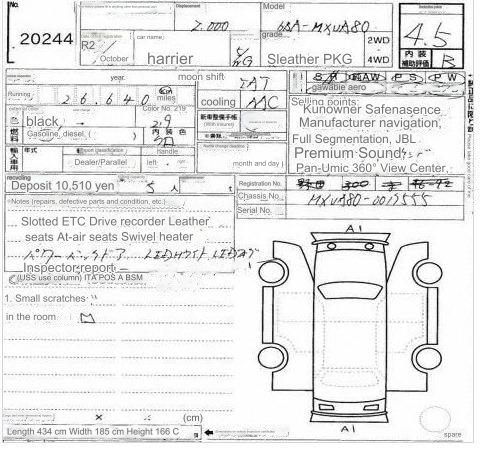 No.
20244
Displacement
2.000
Model
6BA-MXUA80
grade
2WD
4WD
4.5
内装
補助評価
B
R2
October
car name
harrier
Sleather PKG
year
moon shift
FAT
S
AW
P S
P W
gawable aero
Running
26,640
km
miles
cooling
AAC
Selling points:
Kunowner Safenasence
Manufacturer navigation,
Full Segmentation, JBL
Premium Sound
Pan-Umic 360° View Center,
色
black
Color No. 219
燃料
Gasoline, diesel, (
)
内装色
Dealer/Parallel
left
month and day )
recycling
Deposit 10,510 yen
5
人
t
Registration No.
300
46-92
Chassis No.
MXUA80-0019555
Serial No.
Notes (repairs, defective parts and condition, etc.)
Slotted ETC Drive recorder Leather
seats At-air seats Swivel heater
パワーバックドア
Inspector report
(USS use column) ITA POS A BSM
1. Small scratches
in the room
A1
A1
×
×
(cm)
Length 434 cm Width 185 cm Height 166 C
spare